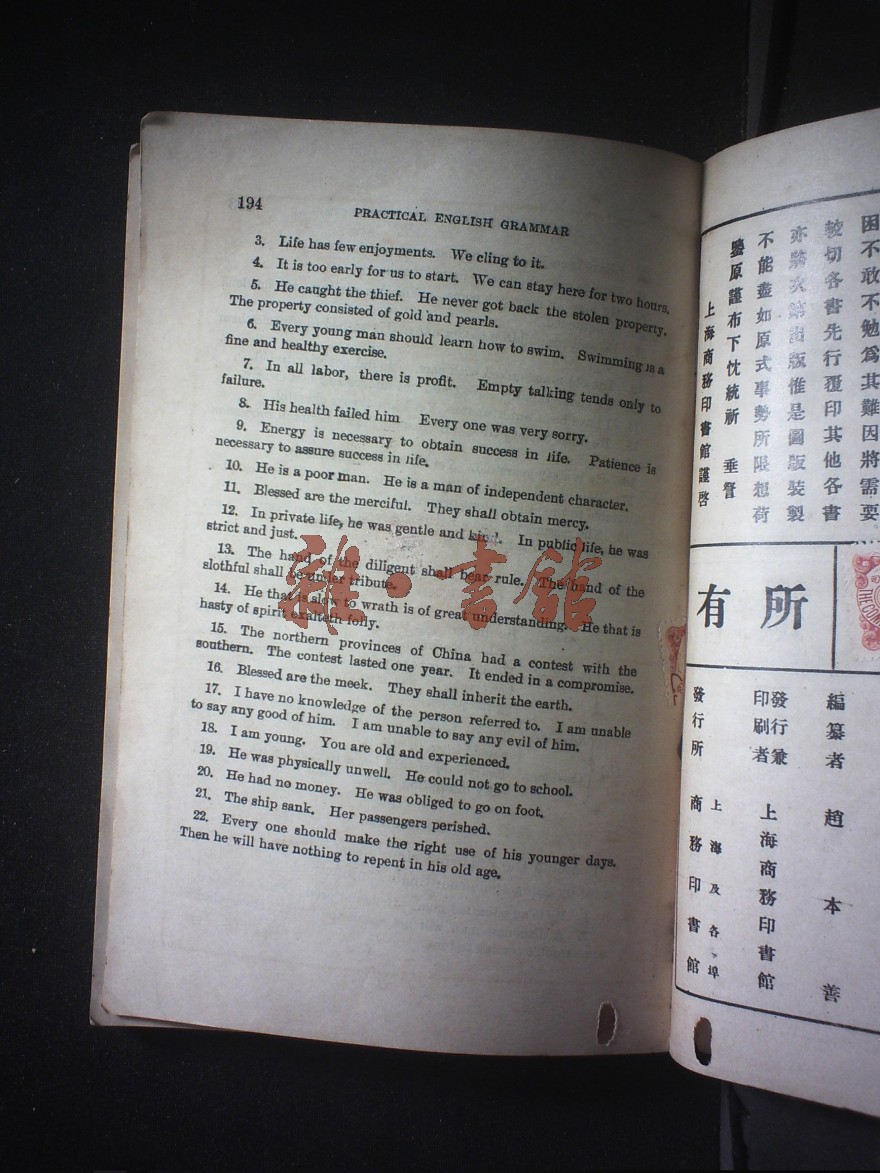 194
PRACTICAL ENGLISH GRAMMAR
3. Life has few enjoyments. We cling to it.
4. It is too early for us to start. We can stay here for two hours.
5. He caught the thief. He never got back the stolen property.
The property consisted of gold and pearls.
6. Every young man should learn how to swim. Swimming is a
fine and healthy exercise.
7. In all labor, there is profit. Empty talking tends only to
failure.
8. His health failed him Every one was very sorry.
9. Energy is necessary to obtain success in life. Patience is
necessary to assure success in life.
10. He is a poor man. He is a man of independent character.
11. Blessed are the merciful. They shall obtain mercy.
12. In private life, he was gentle and kind. In public life, he was
strict and just.
13. The hand of the diligent shall bear rule. The hand of the
slothful shall be under tribute.
14. He that is slow to wrath is of great understanding. He that is
hasty of spirit exalteth folly.
15. The northern provinces of China had a contest with the
southern. The contest lasted one year. It ended in a compromise.
16. Blessed are the meek. They shall inherit the earth.
17. I have no knowledge of the person referred to. I am unable
to say any good of him. I am unable to say any evil of him.
18. I am young. You are old and experienced.
19. He was physically unwell. He could not go to school.
20. He had no money. He was obliged to go on foot.
21. The ship sank. Her passengers perished.
22. Every one should make the right use of his younger days.
Then he will have nothing to repent in his old age.
雜·書館
困不敢不勉爲其難因將需要
較切各書先行覆印其他各書
亦將次第出版惟是圖版裝製
不能盡如原式事勢所限想荷
鑒原謹布下忱統祈 垂詧
上海商務印書館謹啓
所有
編纂者 趙本善
發行兼印刷者 上海商務印書館
發行所 上海及各埠 商務印書館